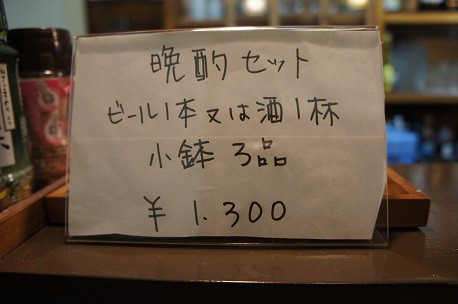 晩酌セット
ビール1本又は酒1杯
小鉢3品
¥1.300